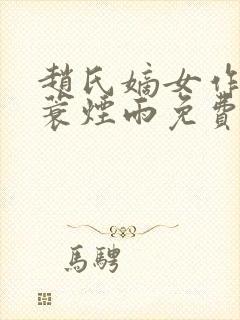 趙氏嫡女作
蓑煙雨免費
馬騁